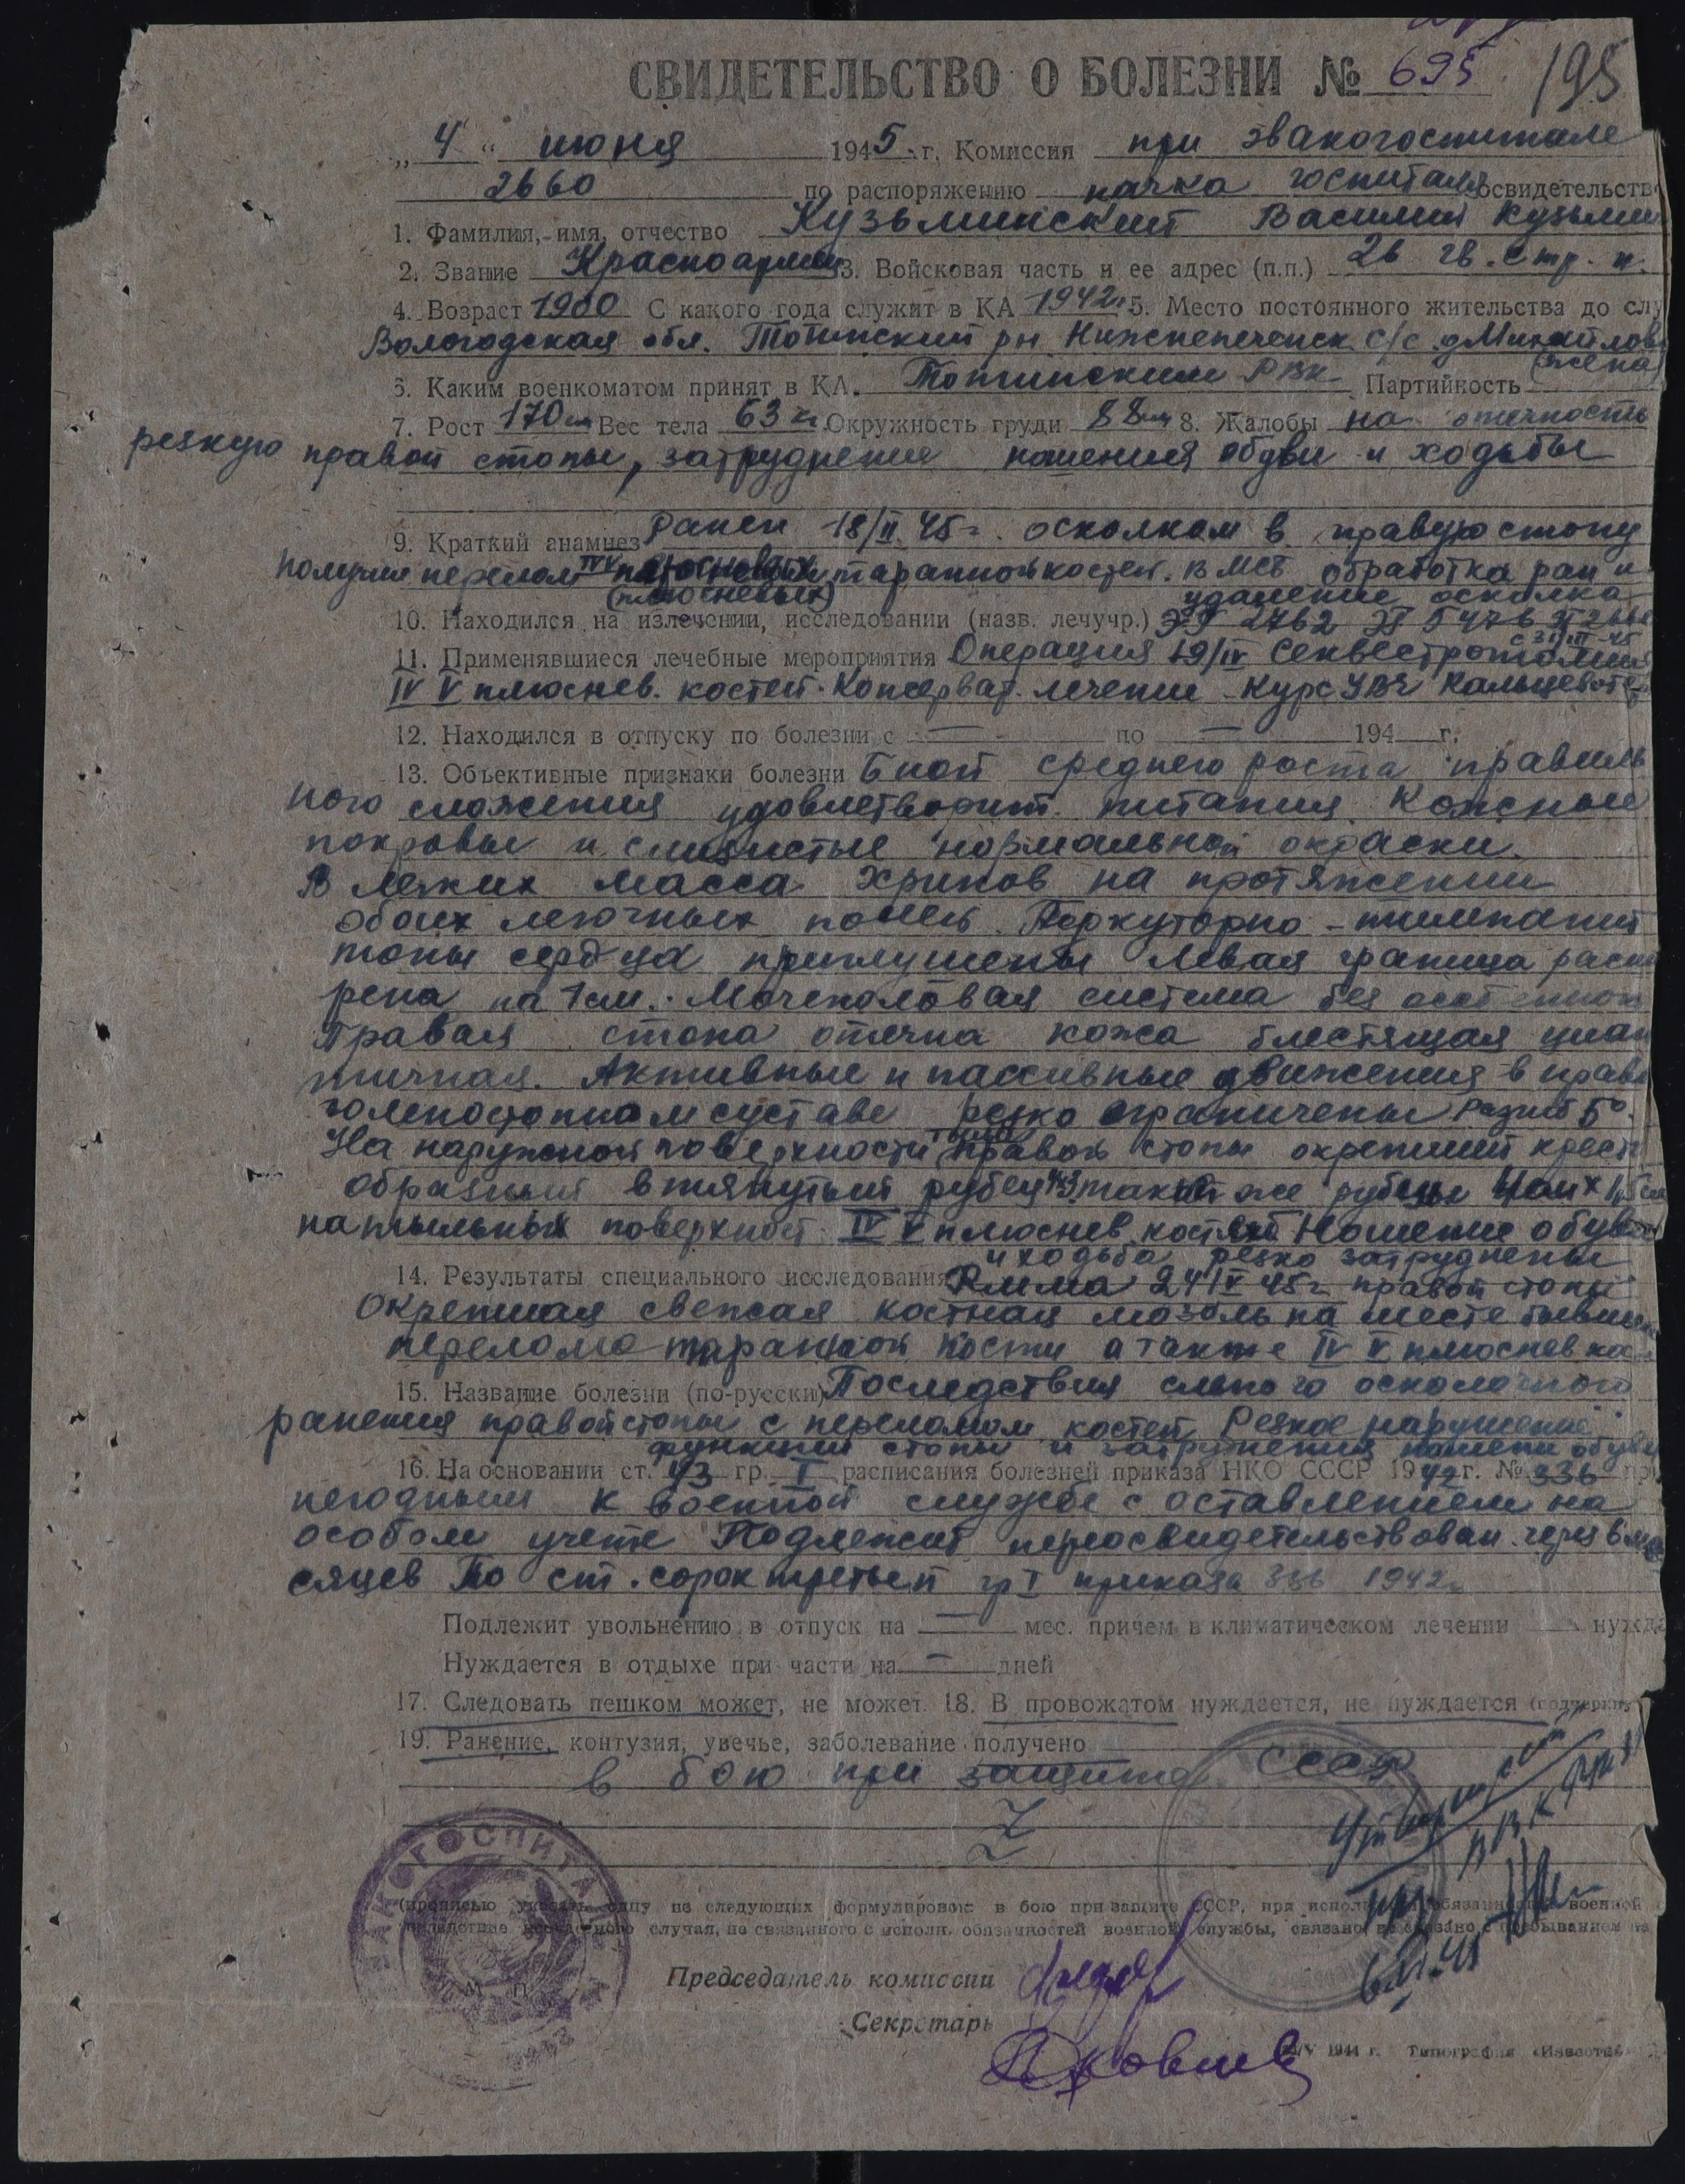 СВИДЕТЕЛЬСТВО О БОЛЕЗНИ № 695. 195
„ 4 “ июня 1945 г. Комиссия при эвакогоспитале
2660 по распоряжению начка госпиталя освидетельство
1. Фамилия, имя, отчество Кузьминский Василий Кузьмич
2. Звание Красноармеец 3. Войсковая часть и ее адрес (п.п.) 26 гв. стр. п.
4. Возраст 1900 С какого года служит в КА 1942 г. 5. Место постоянного жительства до слу
Вологодская обл. Тотьмский рн Нижнепеченск. с/с д Михайлов
(жена)
6. Каким военкоматом принят в КА. Тотьмским РВК Партийность
7. Рост 170 см Вес тела 63 кг Окружность груди 88 см 8. Жалобы на отечность
резкую правой стопы, затруднение ношения обуви и ходьбы
9. Краткий анамнез Ранен 18/II 45 г. осколком в правую стопу
получил перелом IV V таранной костей. В МСБ обработка ран и
(плюсневых) удаление осколка
10. Находился на излечении, исследовании (назв. лечучр.) ЭГ 2762 ЭГ 5476 ЭГ 2660
с 31/III-45
11. Применявшиеся лечебные мероприятия Операция 19/IV Секвестротомия
IV V плюснев. костей. Консерват. лечение - Курс УВЧ
12. Находился в отпуску по болезни с — по — 194 г.
13. Объективные признаки болезни Бной среднего роста правиль
ного сложения удовлетворит. питания. Кожные
покровы и слизистые нормальной окраски.
В легких масса хрипов на протяжении
обоих легочных полей. Перкуторно - тимпанит
тоны сердца приглушены левая граница расши
рена на 1 см. Мочеполовая система без
Правая стопа отечна кожа блестящая циан
тичная. Активные и пассивные движения в право
голеностопном суставе резко ограничены 5°.
На наружной поверхности правой стопы окрепший крест
образный втянутый рубец 4х3, такой же рубец
на тыльной поверхност. IV V плюснев. костей Ношение обуви
и ходьба резко затруднены
14. Результаты специального исследования Rмма 24/V 45 г правой стопы
Окрепшая свежая костная мозоль на месте бывшего
перелома таранной кости а также IV V плюснев ко
15. Название болезни (по-русски) Последствия слепого осколочного
ранения правой стопы с переломом костей. Резкое нарушение
функции стопы и затруднения ношени обуви
16. На основании ст. 43 гр. I расписания болезней приказа НКО СССР 1942 г. № 336 при
негодным к военной службе с оставлением на
особом учете Подлежит переосвидетельствован. через 6 ме
сяцев По ст. сорок третьей гр I приказа 336 1942 г.
Подлежит увольнению в отпуск на — мес. причем в климатическом лечении — нужда
Нуждается в отдыхе при части на — дней
17. Следовать пешком может, не может. 18. В провожатом нуждается, не нуждается (подчеркн.)
19. Ранение, контузия, увечье, заболевание получено
в бою при защите СССР
Z
ВАКОГОСПИТАЛ
(прописью указать одну из следующих формулировок: в бою при защите СССР, при исполнении обязанностей военной
вследствие несчастного случая, не связанного с исполн. обязанностей военной службы, связано, не связано с пребыванием на
М П
Председатель комиссии
Секретарь
Яковлев
V 1944 г. Типография «Известий»